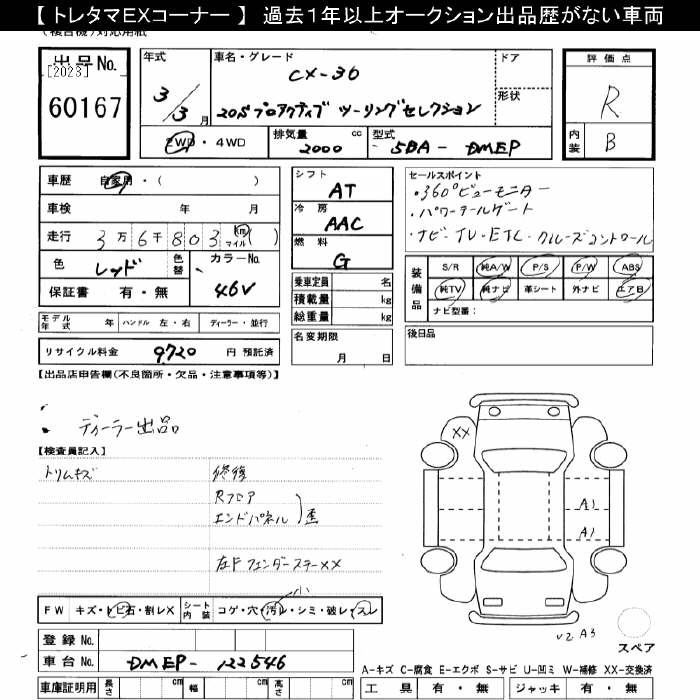 【トレタマEXコーナー】 過去1年以上オークション出品歴がない車両
(複合機)対応用紙
出品No.
[2023]
60167
年式
3/3月
車名・グレード
CX-30
20S プロアクティブ ツーリングセレクション
ドア
形状
2WD・4WD
排気量 2000 cc
型式 5BA-DMEP
評価点
R
内装 B
車歴 自家用・( )
車検 年 月
走行 3万6千803 km マイル ( )
色 レッド 色替
カラーNo. 46V
保証書 有・無
シフト AT
冷房 AAC
燃料 G
乗車定員 名
積載量 kg
総重量 kg
セールスポイント
・360°ビューモニター
・パワーテールゲート
・ナビ・TV・ETC・クルーズコントロール
装備品
S/R 純A/W P/S P/W ABS
純TV 純ナビ 革シート 外ナビ エアB
ナビ型番:
モデル年式 年 ハンドル 左・右 ディーラー・並行
名変期限
月 日
後日品
リサイクル料金 9,720 円 預託済
【出品店申告欄(不良箇所・欠品・注意事項等)】
・ディーラー出品
【検査員記入】
トリムキズ
修復
Rフロア
エンドパネル )歪
左Fフェンダーステー××
XX
A1
A1
小
FW キズ・トビ石・割レX
シート内装 コゲ・穴・汚レ・シミ・破レ・スレ
V2 A3
スペア
登録No.
車台No. DMEP-122546
A-キズ C-腐食 E-エクボ S-サビ U-凹ミ W-補修 XX-交換済
車庫証明用 長さ cm 幅 cm 高さ cm
工具 有・無 ジャッキ 有・無